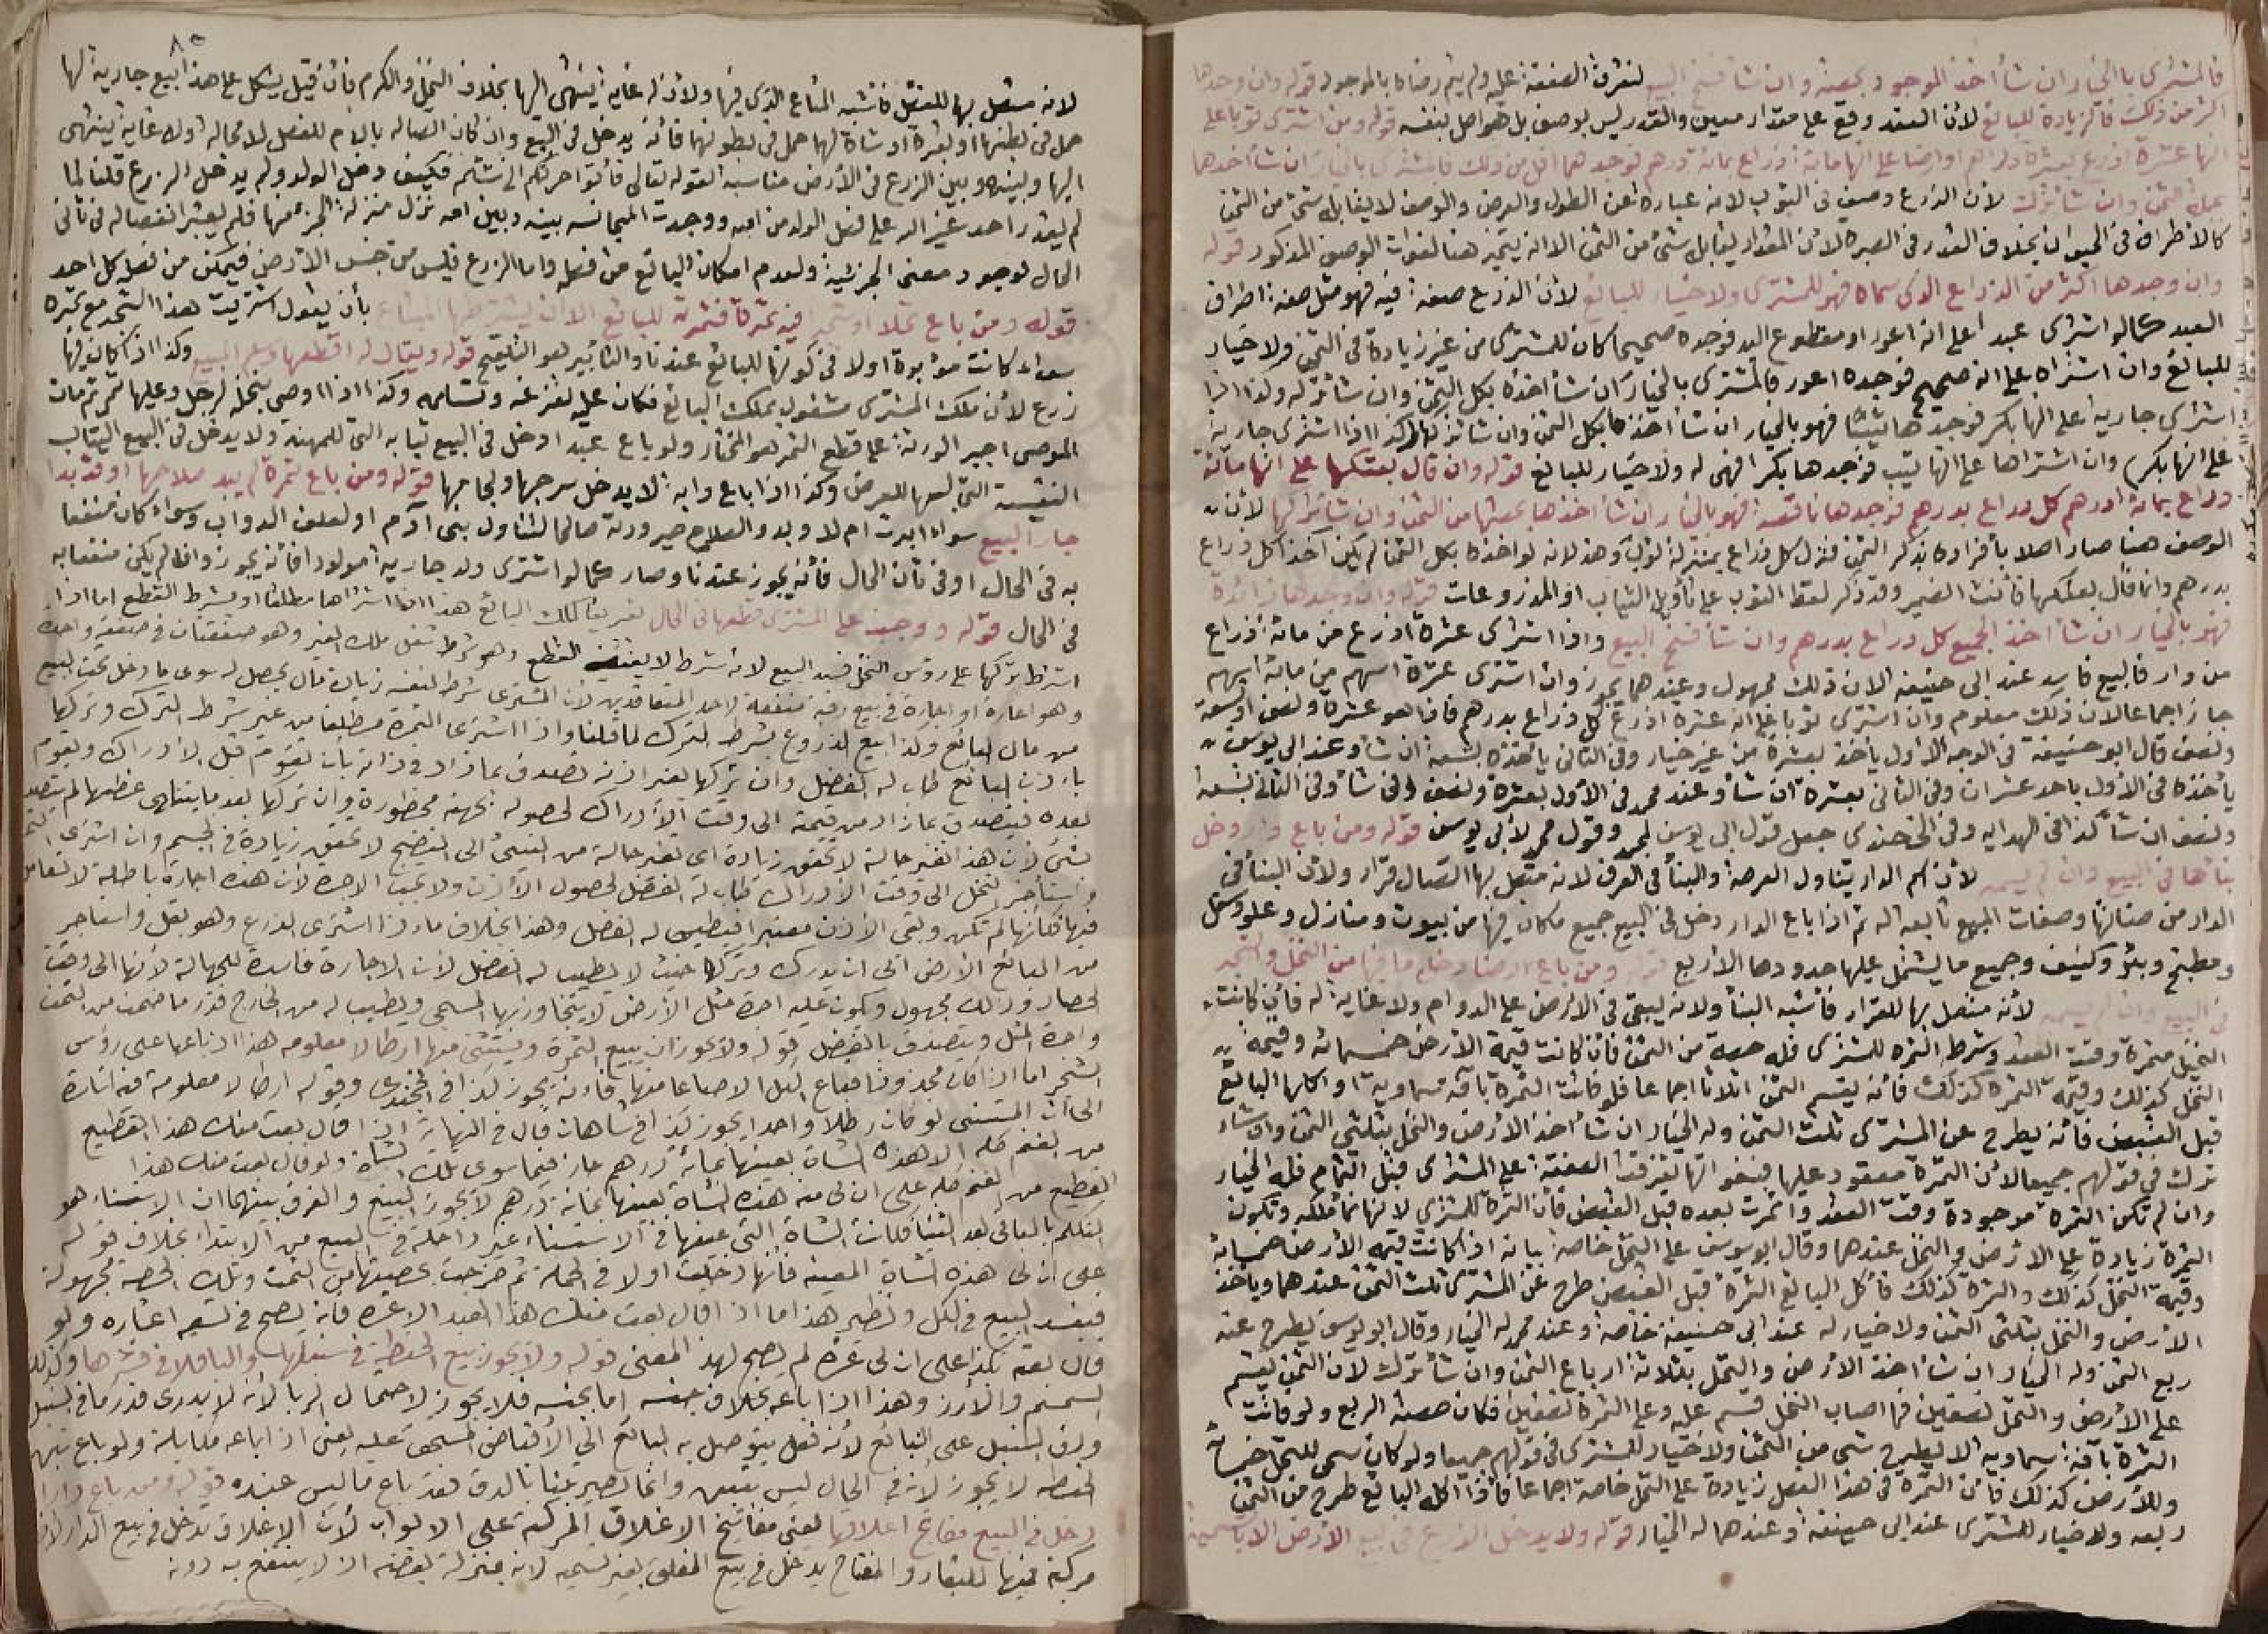 فالمشتري بالخيار ان شاء اخذ الموجود بحصته وان شاء فسخ البيع لتفرق الصفقة عليه ولم يتم رضاه بالموجود قوله وان وجدها
اكثر من ذلك فالزيادة للبائع لأن العقد وقع على مقدار معين والقدر ليس بوصف بل هو اصل بنفسه قوله ومن اشترى ثوبا على
انها عشرة اذرع بعشرة دراهم او ارضا على انها مائة ذراع بمائة درهم فوجدهما اقل من ذلك فالمشتري بالخيار ان شاء اخذها
بجملة الثمن وان شاء ترك لأن الذرع وصف في الثوب لانه عبارة عن الطول والعرض والوصف لا يقابله شيء من الثمن
كالأطراف في الحيوان بخلاف القدر في الصبرة لأن المقدار يقابله شيء من الثمن الا انه يتخير هنا لفوات الوصف المذكور قوله
وان وجدها اكثر من الذراع الذي سماه فهو للمشتري ولا خيار للبائع لأن الذرع صفة فيه فهو مثل صفة اطراف
العبد كما لو اشترى عبدا على انه اعور او مقطوع اليد فوجده صحيحا كان للمشتري من غير زيادة في الثمن ولا خيار
للبائع وان اشتراه على انه صحيح فوجده اعور فالمشتري بالخيار ان شاء اخذه بكل الثمن وان شاء تركه وكذا اذا
اشترى جارية على انها بكر فوجدها ثيبا فهو بالخيار ان شاء اخذها بكل الثمن وان شاء تركها وكذا اذا اشترى جارية
على انها بكر وان اشتراها على انها ثيب فوجدها بكرا فهي له ولا خيار للبائع قوله وان قال بعتكها على انها مائة
ذراع بمائة درهم كل ذراع بدرهم فوجدها ناقصة فهو بالخيار ان شاء اخذها بحصتها من الثمن وان شاء تركها لأن
الوصف هنا صار اصلا بأفراده بذكر الثمن فنزل كل ذراع بمنزلة ثوب وهذا لانه لو اخذه بكل الثمن لم يكن آخذا كل ذراع
بدرهم وانما قال بعتكها فأنث الضمير وقد ذكر لفظ الثوب على تأويل الثياب او المذروعات قوله وان وجدها زائدة
فهو بالخيار ان شاء اخذ الجميع كل ذراع بدرهم وان شاء فسخ البيع واذا اشترى عشرة اذرع من مائة اذراع
من دار فالبيع فاسد عند ابي حنيفة لان ذلك مجهول وعندهما يجوز وان اشترى عشرة اسهم من مائة اسهم
جاز اجماعا لان ذلك معلوم وان اشترى ثوبا على انه عشرة اذرع كل ذراع بدرهم فاذا هو عشرة ونصف او تسعة
ونصف قال ابو حنيفة في الوجه الأول يأخذ بعشرة من غير خيار وفي الثاني يأخذه بتسعة ان شاء وعند ابي يوسف
يأخذه في الأول بأحد عشر ان شاء وفي الثاني بعشرة ان شاء وعند محمد في الأول بعشرة ونصف ان شاء وفي الثاني بتسعة
ونصف ان شاء كذا في الهداية وفي الخجندي جعل قول ابي يوسف لمحمد وقول محمد لأبي يوسف قوله ومن باع دار دخل
بناؤها في البيع وان لم يسمه لأن اسم الدار يتناول العرصة والبناء في العرف لانه متصل بها اتصال قرار ولأن البناء في
الدار من صفاتها وصفات المبيع تابعة له ثم اذا باع الدار دخل في البيع جميع ما كان فيها من بيوت ومنازل وعلو وسفل
ومطبخ وبئر وكنيف وجميع ما يشتمل عليها حدودها الأربع قوله ومن باع ارضا دخل ما فيها من النخل والشجر
في البيع وان لم يسمه لأنه متصل بها للقرار فأشبه البناء ولانه يبقى في الأرض على الدوام ولا غاية له فأن كانت
النخل مثمرة وقت العقد وشرط الثمرة للمشتري فله حصة من الثمن فأن كانت قيمة الأرض خمسمائة وقيمة
النخل كذلك وقيمة الثمرة كذلك فأنه يقسم الثمن اثلاثا اجماعا فلو فاتت الثمرة بآفة سماوية او اكلها البائع
قبل القبض فأنه يطرح عن المشتري ثلث الثمن وله الخيار ان شاء اخذ الأرض والنخل بثلثي الثمن وان شاء
ترك في قولهم جميعا لأن الثمرة معقود عليها فبفواتها تفرقت الصفقة على المشتري قبل التمام فله الخيار
وان لم تكن الثمرة موجودة وقت العقد واثمرت بعده قبل القبض فأن الثمرة للمشتري لانها نماء ملكه وتكون
الثمرة زيادة على الارض والنخل عندهما وقال ابو يوسف على النخل خاصة بيانه اذا كانت قيمة الأرض خمسمائة
وقيمة النخل كذلك والثمرة كذلك فأكل البائع الثمرة قبل القبض طرح عن المشتري ثلث الثمن عندهما ويأخذ
الأرض والنخل بثلثي الثمن ولا خيار له عند ابي حنيفة خاصة وعند محمد له الخيار وقال ابو يوسف يطرح عنه
ربع الثمن وله الخيار ان شاء اخذ الأرض والنخل بثلاثة ارباع الثمن وان شاء ترك لان الثمن يقسم
على الأرض والنخل نصفين فما اصاب النخل قسم عليه وعلى الثمرة نصفين فكان حصته الربع ولو فاتت
الثمرة بآفة سماوية لا يطرح شيء من الثمن ولا خيار للمشتري في قولهم جميعا ولو كان سمى للنخل خمسمائة
وللأرض كذلك فأن الثمرة في هذا الفصل زيادة على النخل خاصة اجماعا فأذا اكله البائع طرح من الثمن
ربعه ولا خيار للمشتري عند ابي حنيفة وعندهما له الخيار قوله ولا يدخل الزرع في بيع الأرض الا بالتسمية
٨٥
لانه متصل بها للفصل فأشبه المتاع الذي فيها ولأن له غاية ينتهي اليها بخلاف النخل والكرم فأن قيل يشكل على هذا بيع جارية لها
حمل في بطنها او بقرة او شاة لها حمل في بطونها فأنه يدخل في البيع وان كان اتصاله بالام للفصل لا محالة وله غاية ينتهي
اليها وبينه وبين الزرع في الأرض مناسبة لقوله تعالى فأتوا حرثكم انى شئتم فكيف دخل الولد ولم يدخل الزرع قلنا لما
لم يقدر احد غير الله على فصل الولد من امه ووجدت المجانسة بينه وبين امه نزل منزلة الجزء منها فلم يعتبر انفصاله في ثاني
الحال لوجود معنى الجزئية ولعدم امكان البائع من فصله واما الزرع فليس من جنس الأرض فيمكن من فصله كل احد
قوله ومن باع نخلا او شجرا فيه ثمرة فثمرته للبائع الا ان يشترطها المبتاع بأن يقول اشتريت هذا الشجر مع ثمره
سواء كانت مؤبرة او لا في كونها للبائع عندنا والتأبير هو التلقيح قوله ويقال له اقطعها وسلم المبيع وكذا اذا كان فيها
زرع لأن ملك المشتري مشغول بملك البائع فكان عليه تفريغه وتسليمه وكذا اذا اوصى بنخله لرجل وعليها ثمر ثم مات
الموصي اجبر الورثة على قطع الثمر هو المختار ولو باع عبدا دخل في البيع ثيابه التي للمهنة ولا يدخل في البيع الثياب
النفيسة التي لبسها للعرض وكذا اذا باع دابة لا يدخل سرجها ولجامها قوله ومن باع ثمرة لم يبد صلاحها او قد بدا
جاز البيع سواء ابرت ام لا وبدو الصلاح صيرورته صالحا لتناول بني آدم او لعلف الدواب وسواء كان منتفعا
به في الحال او في ثان الحال فأنه يجوز عندنا وصار كما لو اشترى ولد جارية مولودا فأنه يجوز وان لم يكن منتفعا به
في الحال قوله ووجب على المشتري قطعها في الحال تفريغا لملك البائع هذا اذا اشتراها مطلقا او بشرط القطع اما اذا
اشترط تركها على رؤس النخل فسد البيع لانه شرط لا يقتضيه القطع وهو شرط شغل ملك الغير وهو صفقتان في صفقة واحدة
وهو اعارة او اجارة في بيع وفيه منفعة لاحد المتعاقدين لان المشتري شرط لنفسه زيادة مال يحصل له سوى ما دخل تحت البيع
من مال البائع وكذا بيع الزروع بشرط الترك لما قلنا واذا اشترى الثمرة مطلقا من غير شرط الترك وتركها
باذن البائع طاب له الفضل وان تركها بغير اذنه تصدق بما زاد في ذاته بان تقوم قبل الأدراك وتقوم
بعده فيتصدق بما زاد من قيمته الى وقت الأدراك لحصوله بجهة محظورة وان تركها بعد ما يتناهى عظمها لم يتصدق
بشيء لأن هذا تغير حالة لا تحقق زيادة اي تغير حالة من النيء الى النضيج لا تحقق زيادة في الجسم وان اشترى
واستأجر النخل الى وقت الأدراك طاب له الفضل لحصول الأذن ولا يجب الاجرة لأن هذه اجارة باطلة لا تعامل
فيها فكأنها لم تكن وبقي الأذن معتبرا فيطيب له الفضل وهذا بخلاف ما اذا اشترى الزرع وهو بقل واستأجر
من البائع الأرض الى ان يدرك وتركها حيث لا يطيب له الفضل لان الاجارة فاسدة للجهالة لانها الى وقت
الحصاد وذلك مجهول ويكون عليه اجرة مثل الأرض لا يتجاوز بها المسمى ويطيب له من الخارج قدر ما ضمن من الثمن
واجرة المثل ويتصدق بالفضل قوله ولا يجوز ان يبيع الثمرة ويستثني منها ارطالا معلومه هذا اذا باعها على رؤس
الشجر اما اذا كان مجذوذا فباع الكل الا صاعا منها فأنه يجوز كذا في الخجندي وقوله ارطالا معلومة فيه اشارة
الى ان المستثنى لو كان رطلا واحدا يجوز كذا في شاهان قال في النهاية اذا قال بعت منك هذا القطيع
من الغنم كله الا هذه الشاة بعينها بمائة درهم جاز فيما سوى تلك الشاة ولو قال بعت منك هذا
القطيع من الغنم كله على ان لي منه هذه الشاة بعينها بمائة درهم لا يجوز البيع والفرق بينهما ان الاستثناء هو
التكلم بالباقي بعد الثنيا فكانت الشاة التي عينها في الاستثناء غير داخلة في البيع من الابتداء بخلاف قوله
على ان لي هذه الشاة المعينة فأنها دخلت اولا في الجملة ثم خرجت بحصتها من الثمن وتلك الحصة مجهولة
فيفسد البيع في الكل ونظير هذا ما اذا قال بعت منك هذا العبد الا عشره فانه يصح في تسعة اعشاره ولو
قال بعته بكذا على ان لي عشره لم يصح لهذا المعنى قوله ولا يجوز بيع الحنطة في سنبلها والباقلا في قشرها وكذلك
السمسم والأرز وهذا اذا باعه بخلاف جنسه اما بجنسه فلا يجوز لاحتمال الربا لأنه لا يدري قدر ما في السنبل
ودق السنبل على البائع لأنه فعل يتوصل به البائع الى الأقباض المستحق عليه يعني اذا باعه مكايلة ولو باع تبن
الحنطة لا يجوز لأنه في الحال ليس بتبن وانما يصير تبنا بالدق فقد باع ما ليس عنده قوله ومن باع دارا
دخل في المبيع مفاتيح اغلاقها يعني مفاتيح الاغلاق المركبة على الابواب لأن الاغلاق تدخل في بيع الدار لأنها
مركبة فيها للبقاء والمفتاح يدخل في بيع الغلق بغير تسمية لانه بمنزلة بعضه اذ لا ينتفع به دونه